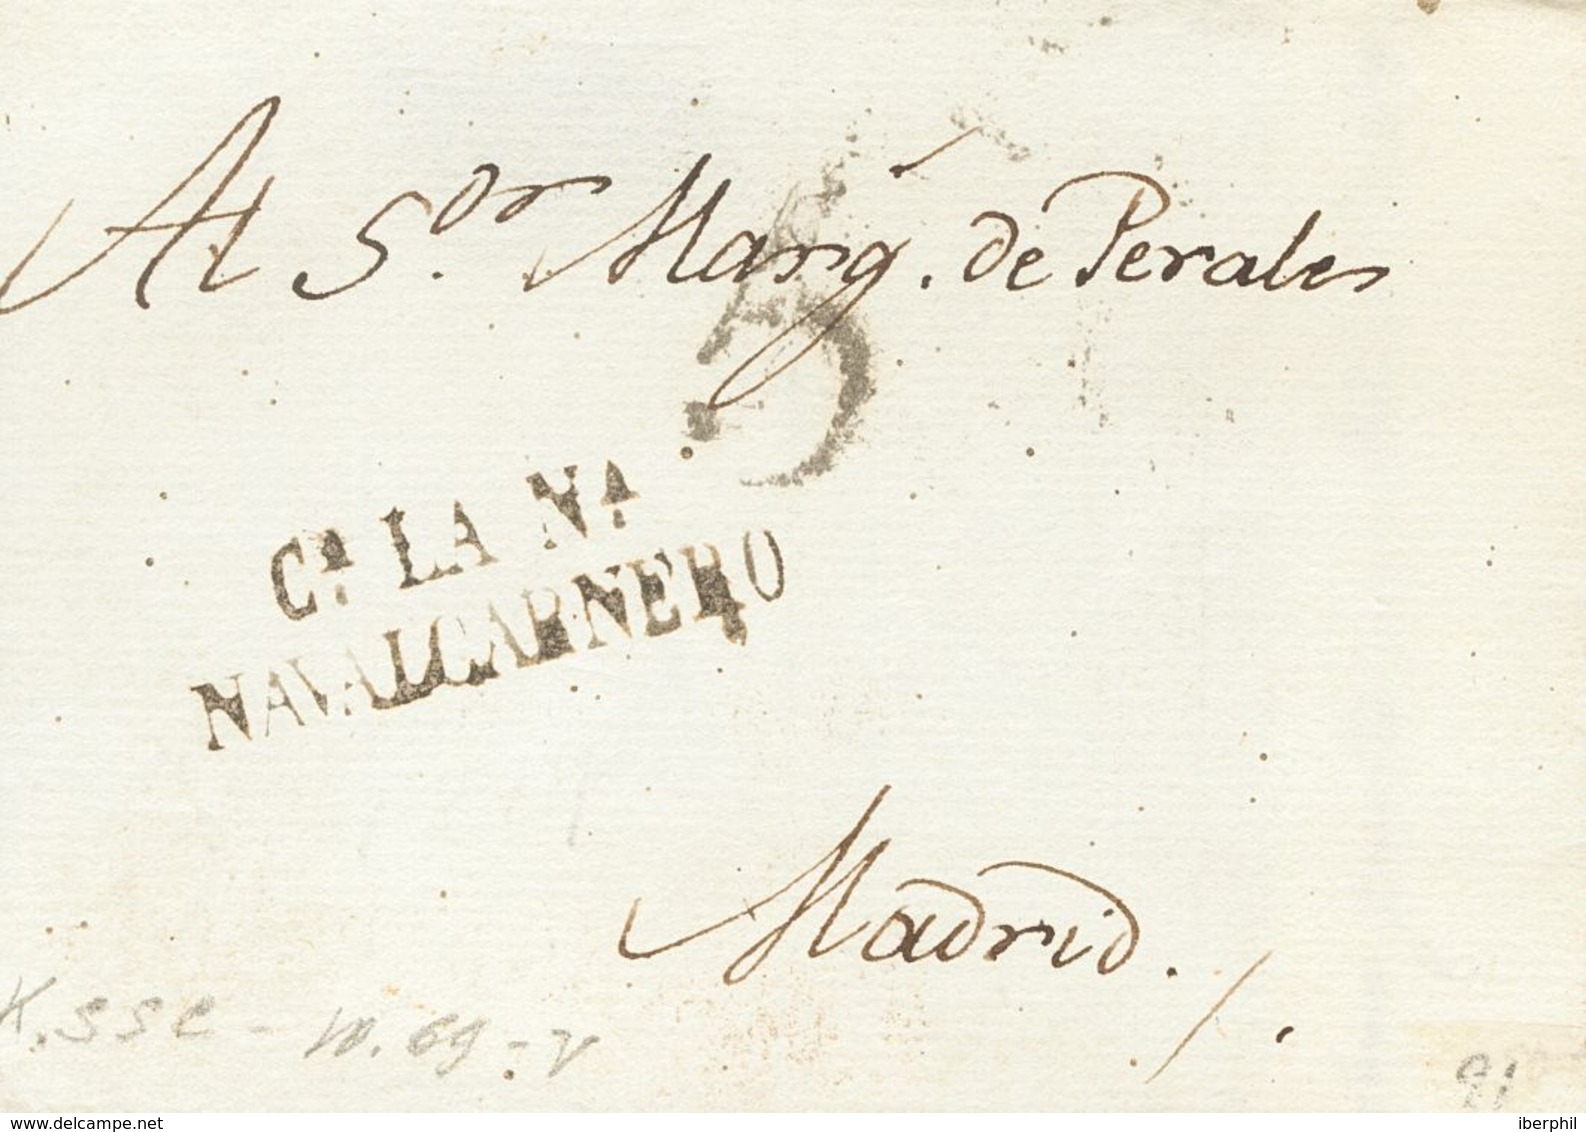 Al S.or Marq.́ de Perales
5
C.a LA N.a
NAVALCARNERO
Madrid.
91
delcampe.net
iberphil